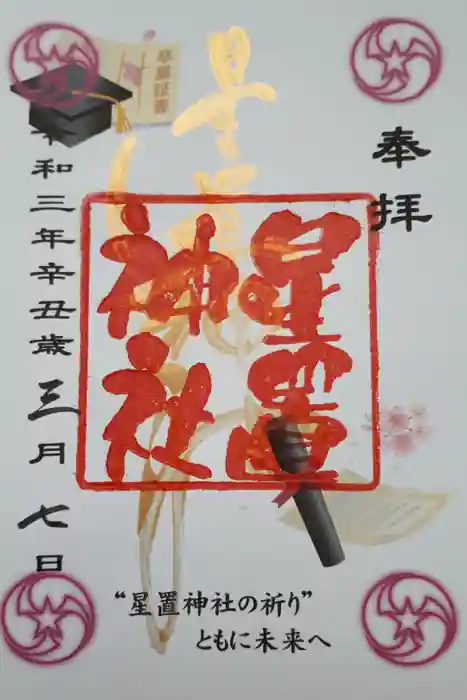 奉拝
星置
神社
令和三年辛丑歳三月七日
卒業証書
“星置神社の祈り”
ともに未来へ